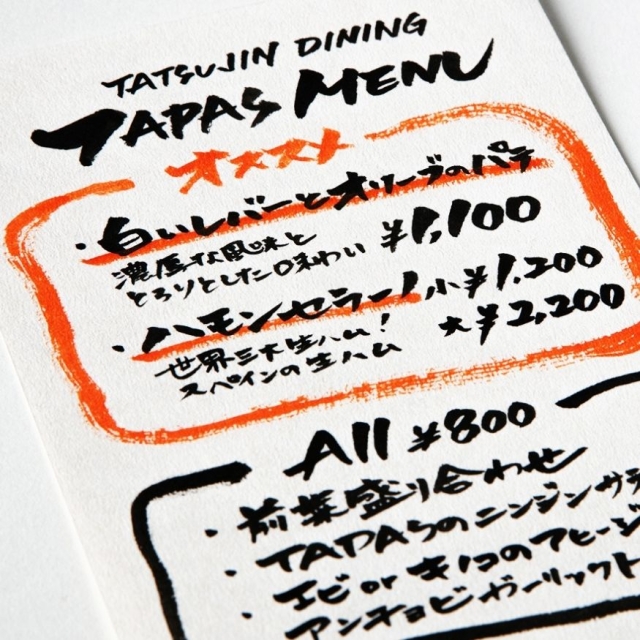 TATSUJIN DINING
TAPAS MENU
オススメ
・白いレバーとオリーブのパテ
濃厚な風味と
とろりとした口味わい ¥1,100
・ハモンセラーノ 小¥1,200
世界三大生ハム! 大¥2,200
スペインの生ハム
All ¥800
・前菜盛り合わせ
・TAPASのニンジンサラ
・エビorキノコのアヒージ
アンチョビガーリックト